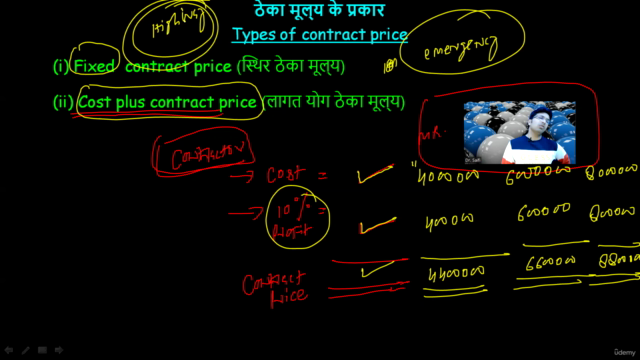 ठेका मूल्य के प्रकार
Types of contract price
(i) Fixed contract price (स्थिर ठेका मूल्य)
emergency
(ii) Cost plus contract price (लागत योग ठेका मूल्य)
Contractor
→ Cost = ✓ 4000000 6000000 8000000
→ 10% = ✓ 400000 600000 800000
Profit
Contract ✓ 4400000 6600000
Price
ûdemy